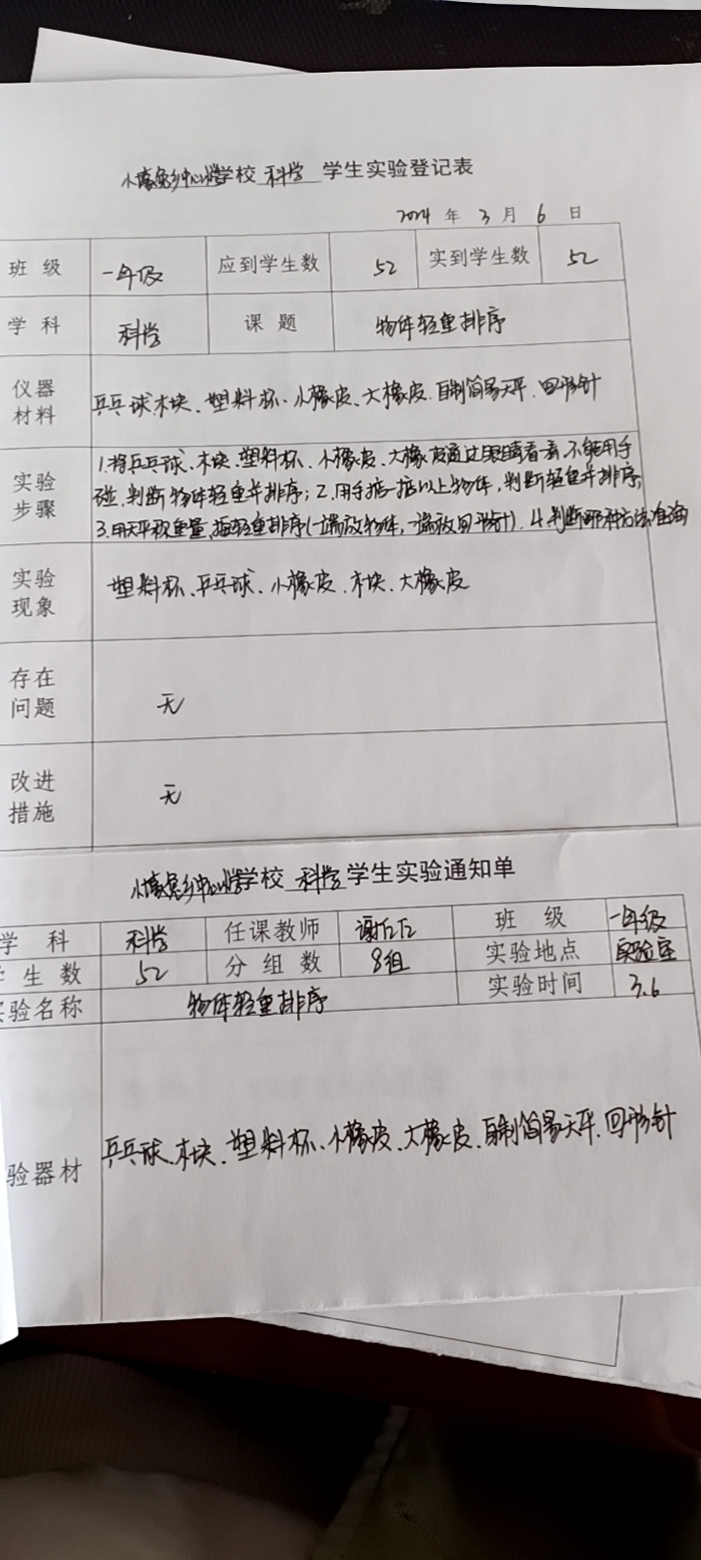 小壕兔乡中心小学学校 科学 学生实验登记表
2024 年 3 月 6 日
班 级 一年级 应到学生数 52 实到学生数 52
学 科 科学 课 题 物体轻重排序
仪器材料 乒乓球、木块、塑料杯、小橡皮、大橡皮、自制简易天平、回形针
实验步骤 1.将乒乓球、木块、塑料杯、小橡皮、大橡皮通过眼睛看看,不能用手
碰,判断物体轻重并排序;2.用手掂一掂以上物体,判断轻重并排序;
3.用天平称重量,轻重排序(一端放物体,一端放回形针).4.判断哪种方法准确
实验现象 塑料杯、乒乓球、小橡皮、木块、大橡皮
存在问题 无
改进措施 无
小壕兔乡中心小学学校 科学 学生实验通知单
学 科 科学 任课教师 谢 班 级 一年级
学 生 数 52 分 组 数 8组 实验地点 实验室
实验名称 物体轻重排序 实验时间 3.6
验器材 乒乓球、木块、塑料杯、小橡皮、大橡皮、自制简易天平、回形针